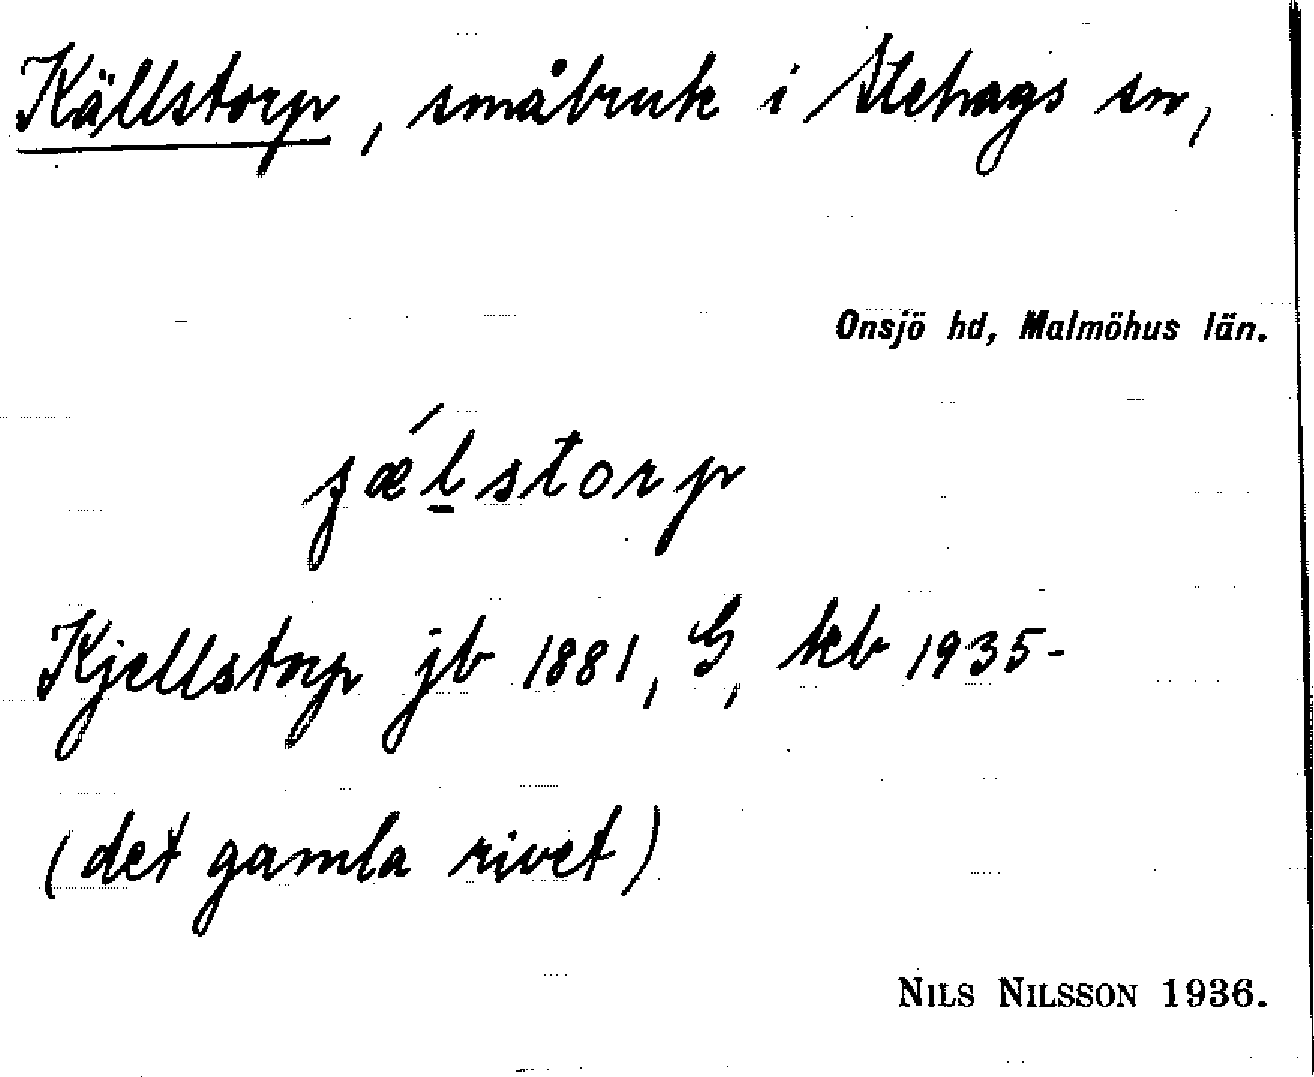 Källstorp, småbruk i Stehags sn,
Onsjö hd, Malmöhus län.
ʃǽl̠storp
Kjellstorp jb 1881, G, kb 1935-
(det gamla rivet)
NILS NILSSON 1936.